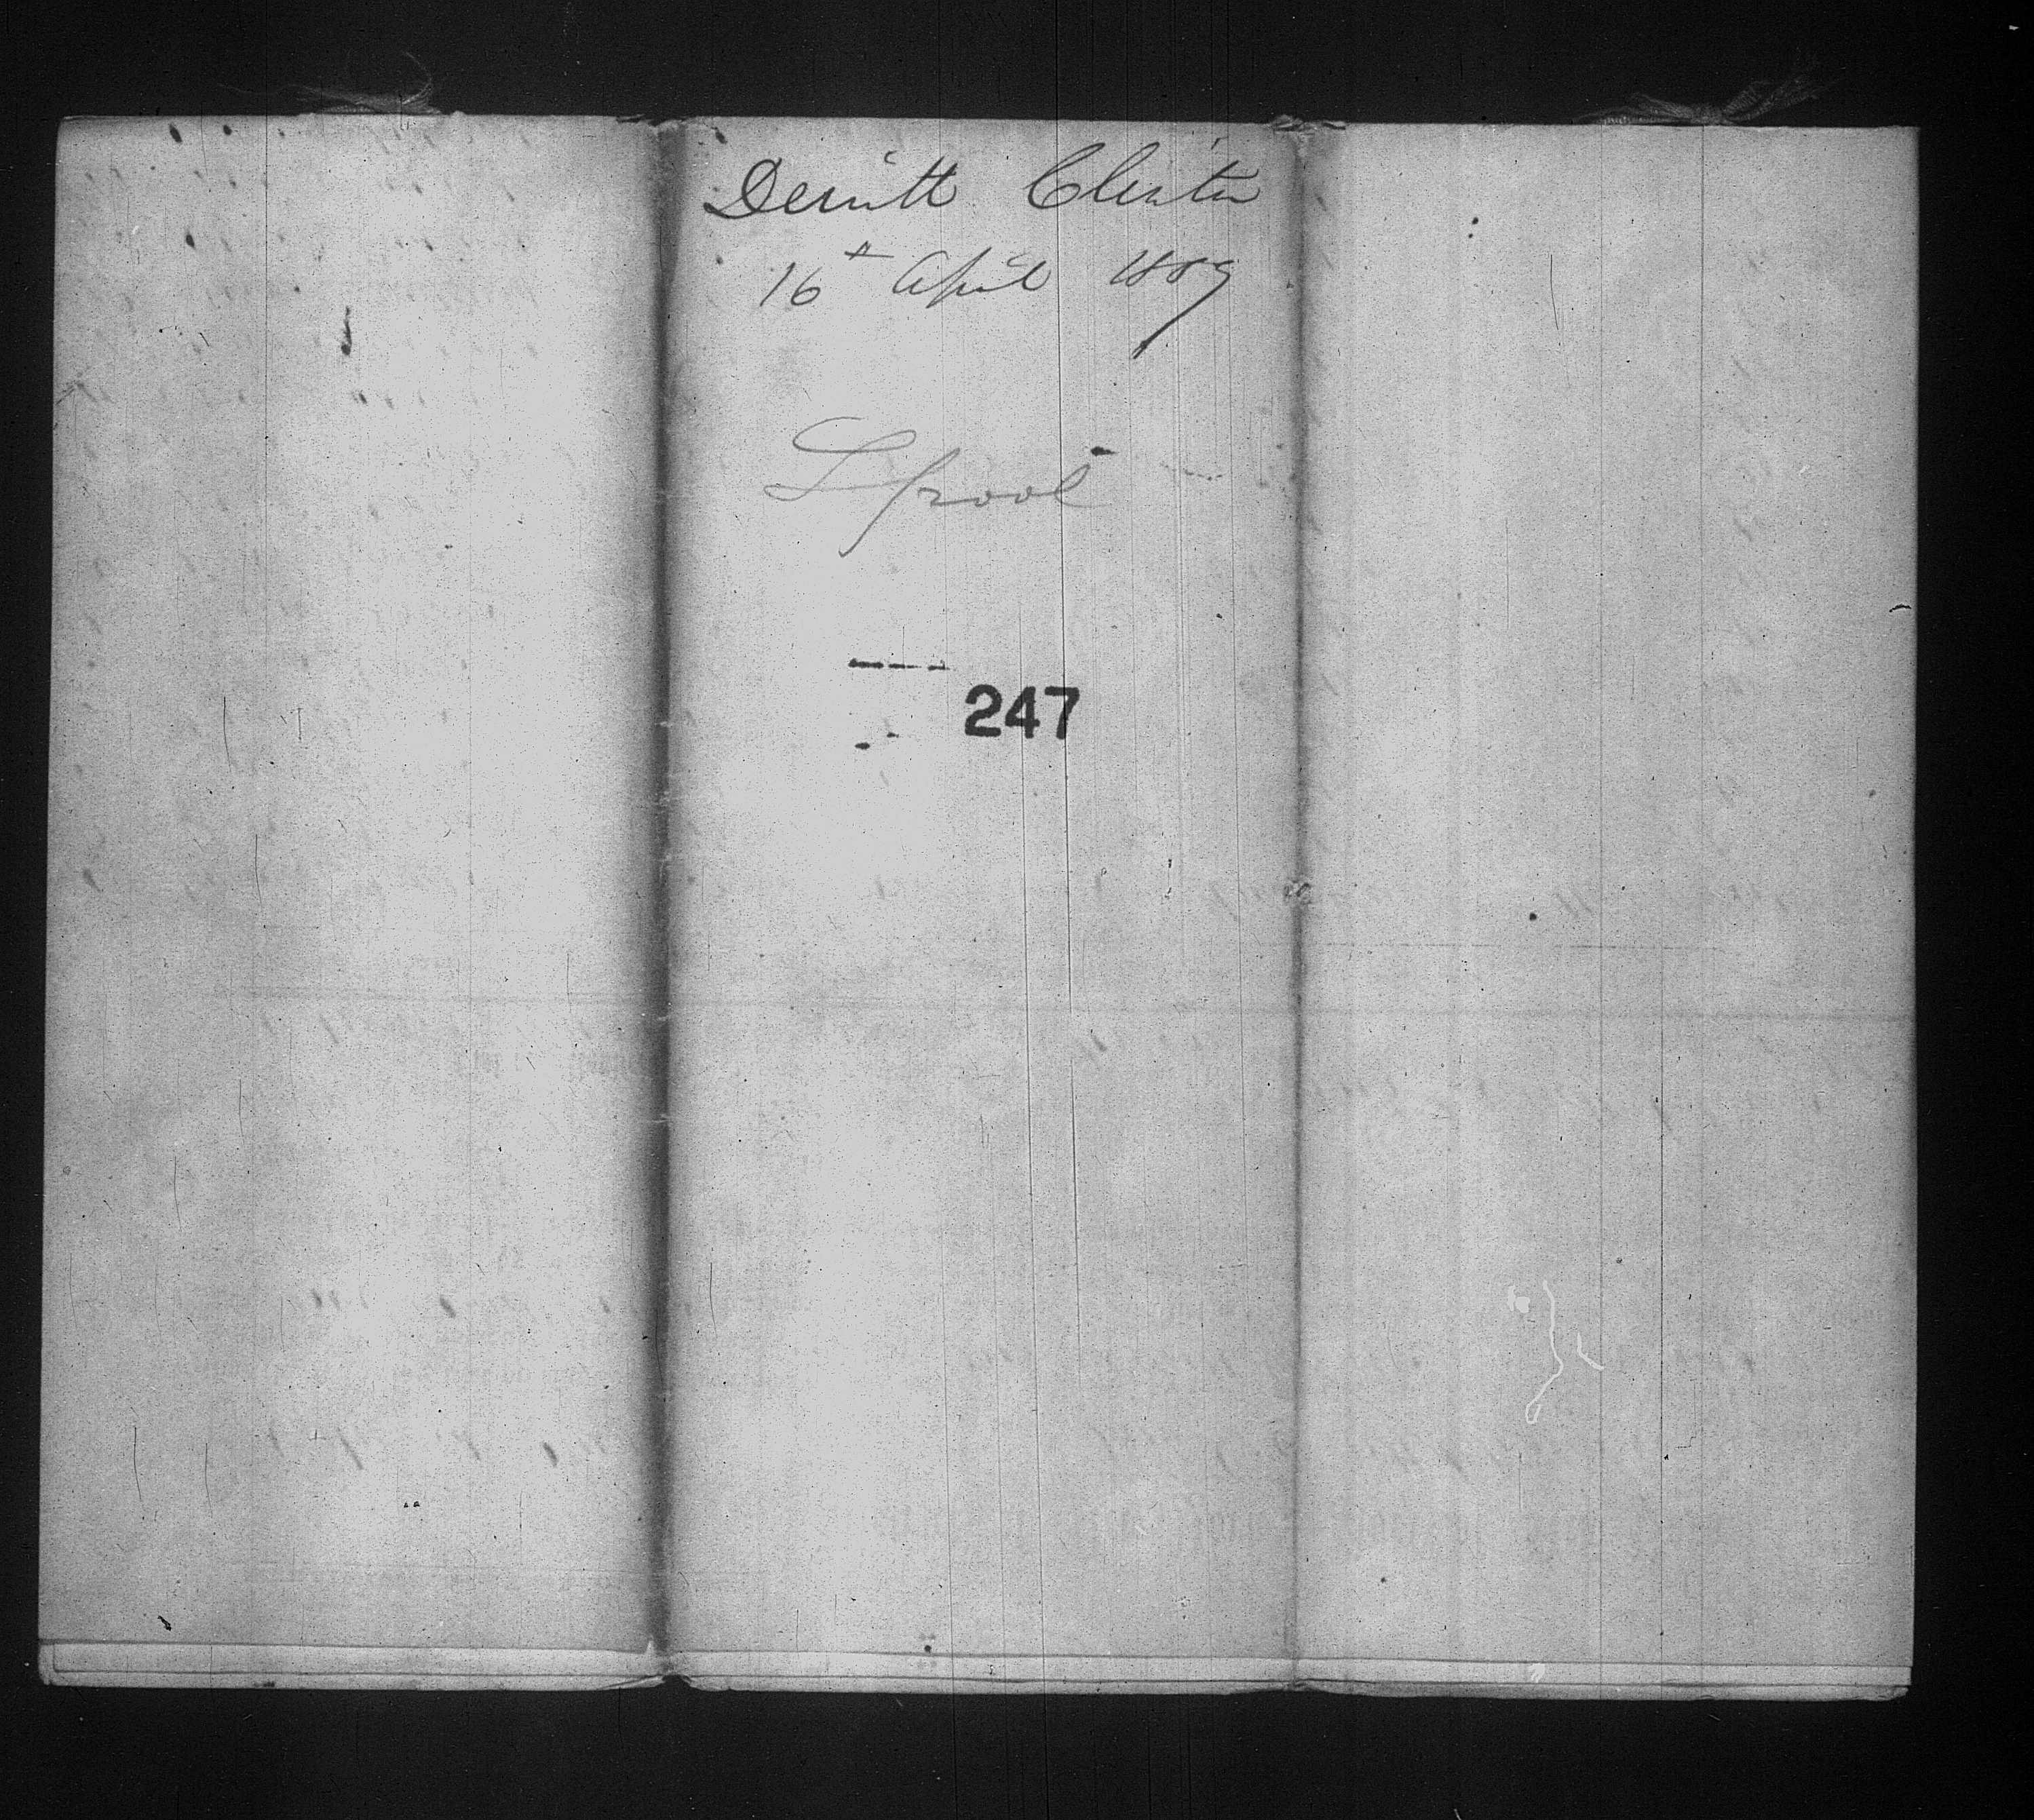 Dewitt Clinton
16th April 1809
Lpool
247